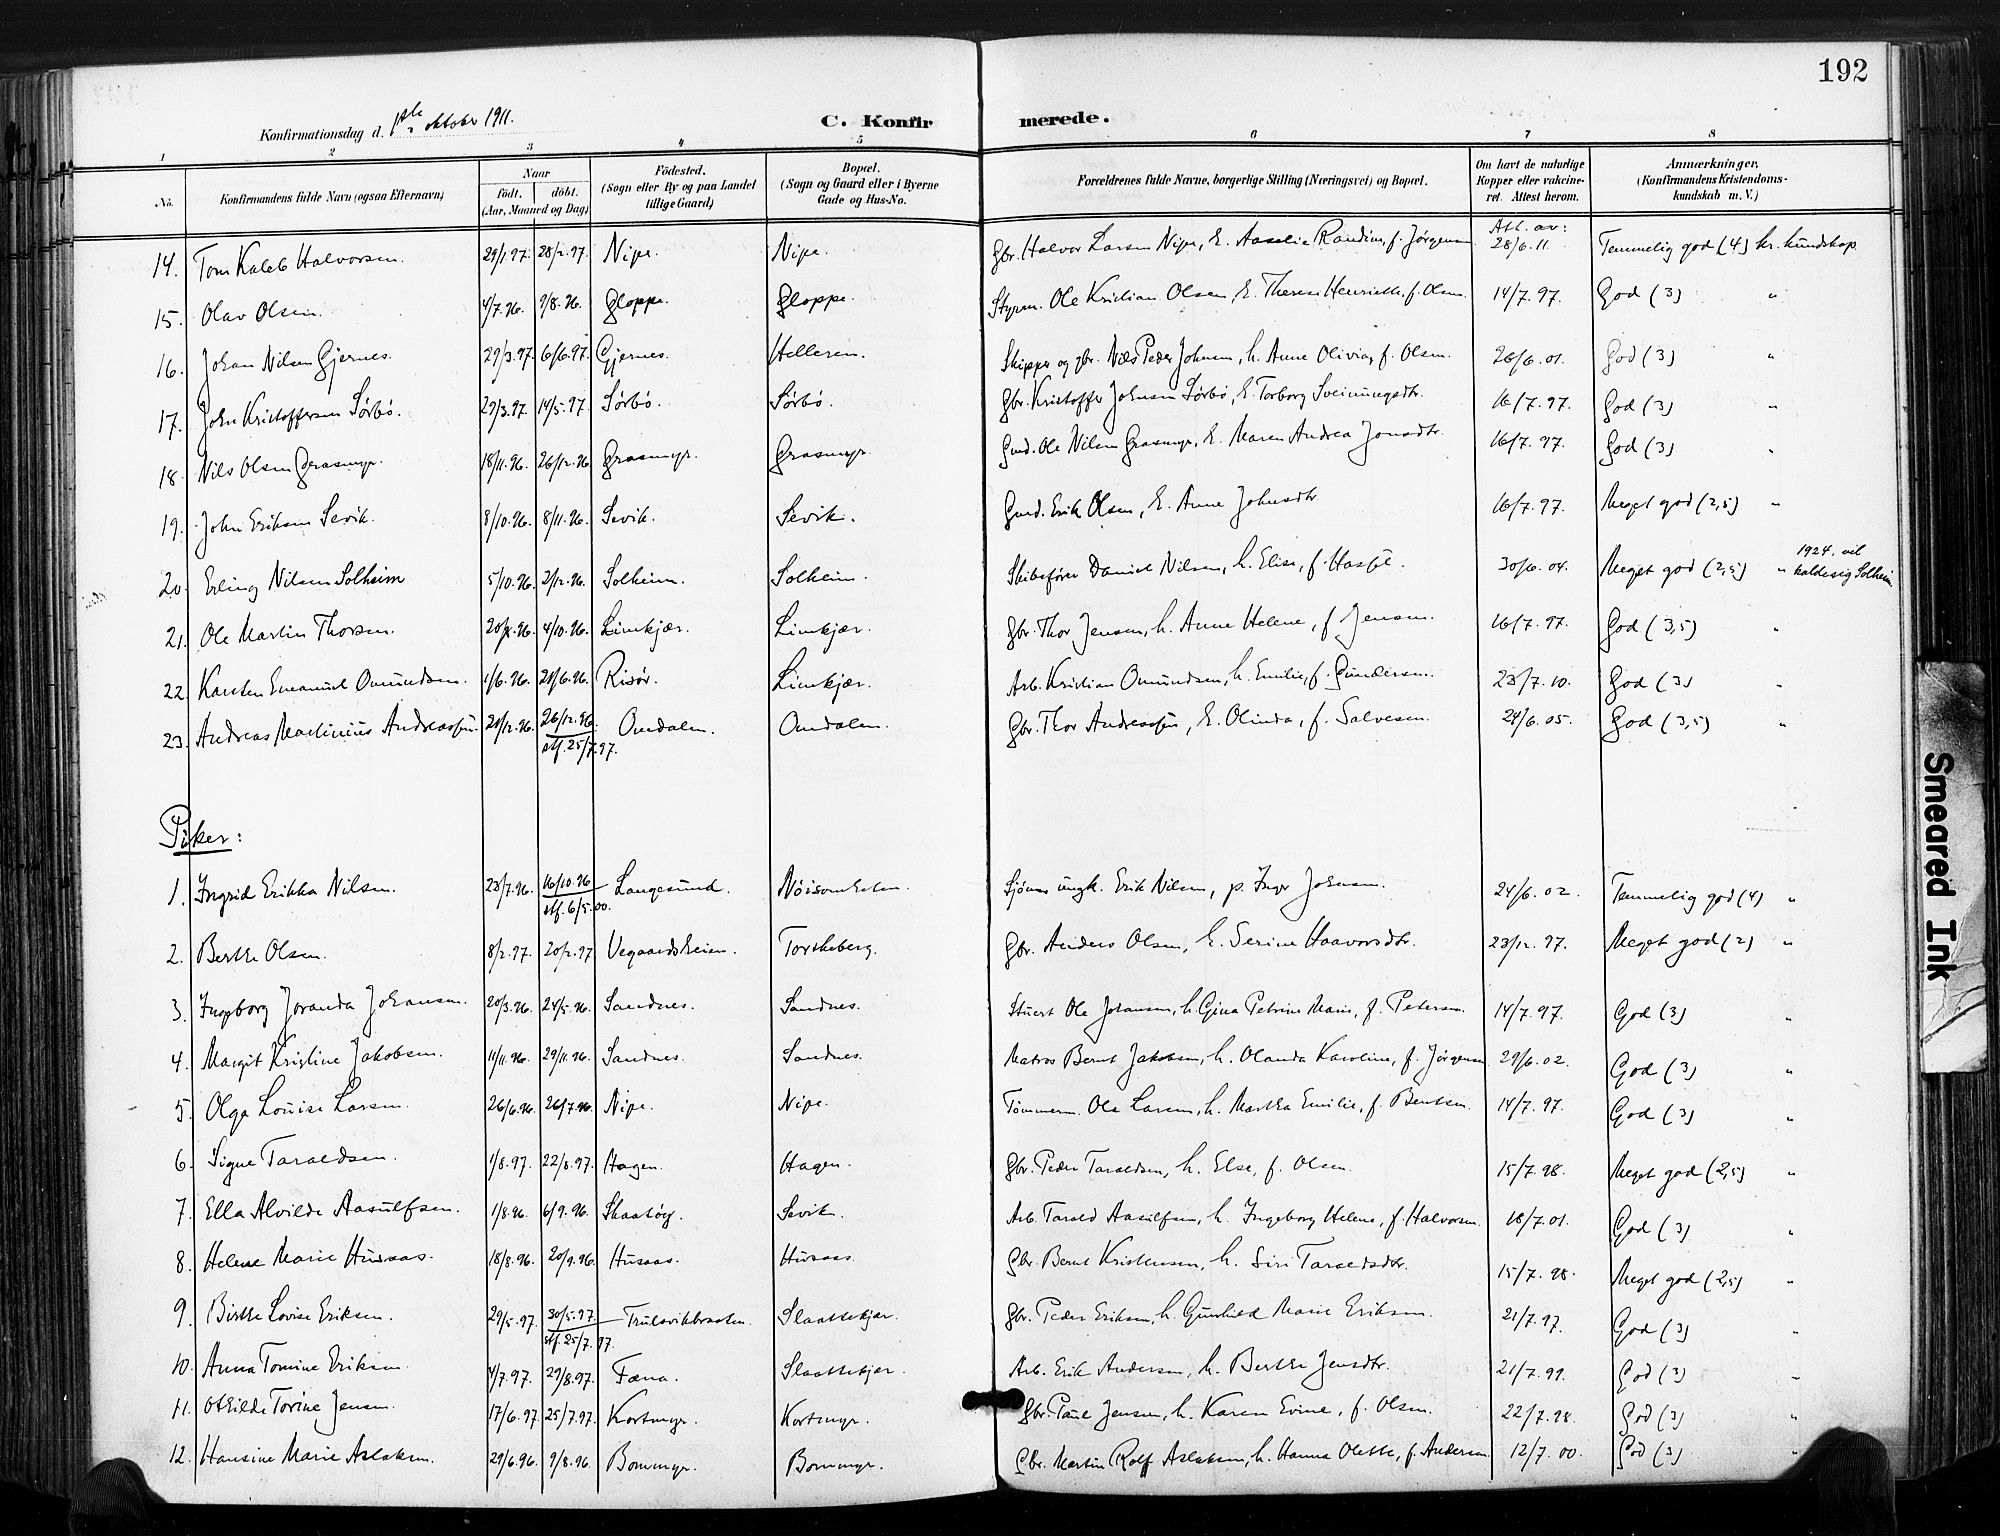 192
Konfirmationsdag d. 1ste oktober 1911.
C. Konfirmerede.
1 2 3 4 5 6 7 8
No. Konfirmandens fulde Navn (ogsaa Efternavn) Naar födt. döbt. (Aar, Maaned og Dag) Födested. (Sogn eller By og paa Landet tillige Gaard) Bopæl. (Sogn og Gaard eller i Byerne Gade og Hus-No. Forældrenes fulde Navne, borgerlige Stilling (Næringsvei) og Bopæl. Om havt de naturlige Kopper eller vakcineret. Attest herom. Anmærkninger. (Konfirmandens Kristendomskundskab m. V.)
14. Tom Kaleb Halvorsen. 29/1.97. 28/2.97. Nipe. Nipe. Gbr. Halvor Larsen Nipe, h. Aaselie Randine, f. Jörgensen Att. av: 28/6.11. Temmelig god (4) kr. kundskap.
15. Olav Olsen. 4/7.96. 9/8.96. Gloppe. Gloppe. Styrm. Ole Kristian Olsen, h. Therese Henriette, f. Olsen. 14/7.97. God (3) "
16. Johan Nilsen Gjernes. 29/3.97. 6/6.97. Gjernes. Helleren. Skipper og gbr. Nils Peder Johnsen, h. Anne Olivia, f. Olsen. 26/6.01. God (3) "
17. John Kristoffersen Sörbö. 29/3.97. 14/5.97. Sörbö. Sörbö. Gbr. Kristoffer Johnsen Sörbö, h. Torborg Sveinungsdtr. 16/7.97. God (3) "
18. Nils Olsen Grasmyr. 18/11.96. 26/12.96 Grasmyr. Grasmyr. Gmd. Ole Nilsen Grasmyr, h. Maren Andrea Jonsdtr. 16/7.97. God (3) "
19. John Eriksen Sevik. 8/10.96. 8/11.96. Sevik. Sevik. Gmd. Erik Olsen, h. Anne Johnsdtr. 16/7.97. Meget god (2,5) "
20. Erling Nilsen Solheim 5/10.96. 2/12.96. Solheim. Solheim. Skibsförer Daniel Nilsen, h. Elise, f. 30/6.04. Meget god (2,5) " 1924. vil kalde sig Solheim
21. Ole Martin Thorsen. 4/10.96. Limkjær. Limkjær. Gbr. Thor Jensen, h. Anne Helene, f. Jensen. 16/7.97. God (3,5) "
22. Karsten Emanuel Omundsen. 1/6.96. 28/6.96. Risör. Limkjær. Arb. Kristian Omundsen, h. Emilie, f. Gundersen. 23/7.10. God (3) "
23. Andreas Martinius Andreassen. 21/12.96. 26/12.96. stf. 25/7.97. Omdalen. Omdalen. Gbr. Thor Andreassen, h. Olinda, f. Salvesen. 24/6.05. God (3,5) "
Piker:
1. Ingrid Erikka Nilsen. 23/7.96. 16/10.96 stf. 6/5.00. Langesund. Nöisomheten. Sjömd. ungk. Erik Nilsen, p. Inger Johnsen. 24/6.02. Temmelig god (4) "
2. Berthe Olsen. 8/2.97. 20/2.97 Vegaardsheien. Torskeberg. Gbr. Anders Olsen, h. Serine Haavorsdtr. 23/12.97. Meget god (2) "
3. Ingeborg Joranda Johansen. 20/3.96. 24/5.96. Sandnes. Sandnes. Stuert Ole Johansen, h. Gina Petrine Marie, f. Petersen. 14/7.97. God (3) "
4. Margit Kristine Jakobsen. 11/11.96. 29/11.96. Sandnes. Sandnes. Matros Bernt Jakobsen, h. Olanda Karoline, f. Jörgensen 29/6.02. God (3) "
5. Olga Louise Larsen. 26/6.96. 26/7.96. Nipe. Nipe. Tömmerm. Ole Larsen, h. Martha Emilie, f. Bentsen. 14/7.97. God (3) "
6. Signe Taraldsen. 1/8.97. 22/8.97. Hagen. Hagen. Gbr. Peder Taraldsen, h. Else, f. Olsen. 15/7.98. Meget god (2,5) "
7. Ella Alvilde Aasulfsen. 1/8.96. 6/9.96. Skaatöy. Sevik. Arb. Tarald Aasulfsen, h. Ingeborg Helene, f. Halvorsen. 18/7.01. God (3) "
8. Helene Marie Husaas. 18/8.96. 20/9.96. Husaas. Husaas. Gbr. Bernt Kristensen, h. Siri Taraldsdtr. 15/7.98. Meget god (2,5) "
9. Birthe Lovise Eriksen. 29/5.97. 30/5.97. stf. 25/7.97. Trulsvikbraaten. Slaattekjær. Gbr. Peder Eriksen, h. Gunhild Marie Eriksen. 21/7.97. God (3) "
10. Anna Tomine Eriksen. 4/7.97. 29/8.97. Fæna. Slaattekjær. Arb. Erik Andersen, h. Berthe Jensdtr. 21/7.99. God (3) "
11. Othilde Torine Jensen. 17/6.97. 25/7.97. Kortmyr. Kortmyr. Gbr. Paul Jensen, h. Karen Evine, f. Olsen. 22/7.98. God (3) "
12. Hansine Marie Aslaksen. 29/6.96. 9/8.96. Bommyr. Bommyr. Gbr. Martin Rolf Aslaksen, h. Hanna Olette, f. Andersen 12/7.00. God (3) "
Smeared Ink